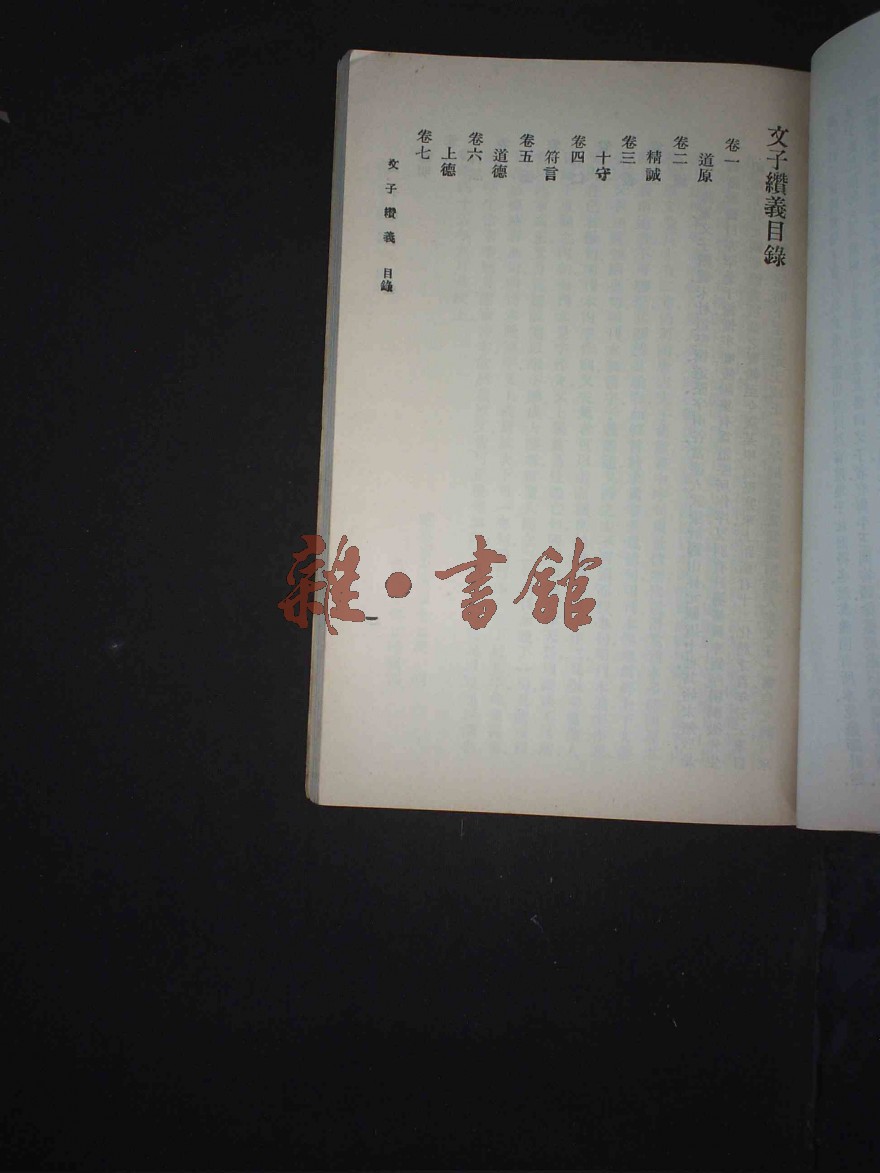 文子纘義目錄
卷一
道原
卷二
精誠
卷三
十守
卷四
符言
卷五
道德
卷六
上德
卷七
文子纘義 目錄
一
雜·書館